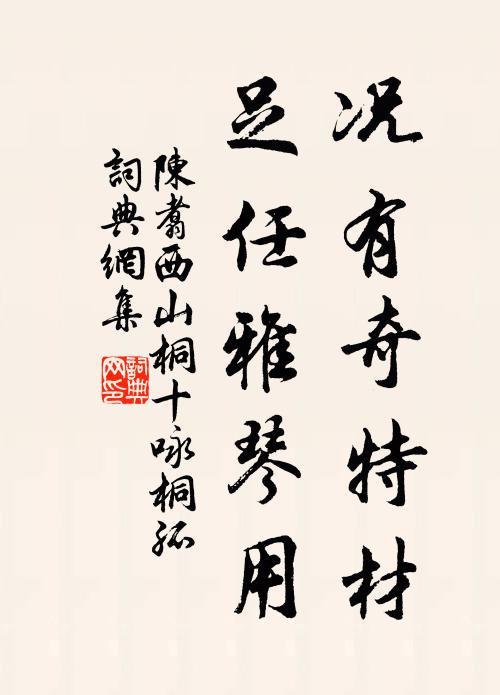 况有奇特材
足任雅琴用
陳翥西山桐十咏桐孤
詞典網集
詞典
网印